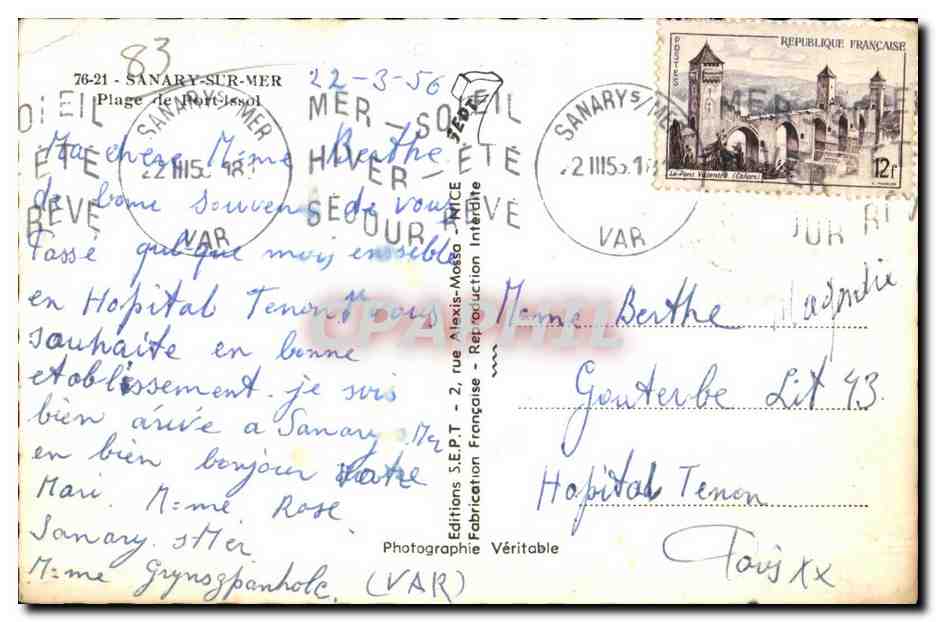 83
76-21 - SANARY-SUR-MER
Plage de Port-Issol
22-3-56
SEPT
OLEIL
ÉTÉ
RÊVE
SANARY S/MER
22 III 56 18
VAR
MER - SOLEIL
HIVER - ÉTÉ
SÉJOUR RÊVE
SANARY S/MER
22 III 56 18
VAR
MER
UR RÊ
POSTES
REPUBLIQUE FRANÇAISE
Le Pont Valentré (Cahors)
12f
Ma chere Mème Berthe
de bonne souvenir de vous
Passé quelque mois enssible
en Hopital Tenon vous
souhaite en bonne
etoblissement je suis
bien arivé a Sanary s Mer
en bien bonjour votre
Mari M=me Rose
Sanary s Mer
M=me Grynszpanholc
(VAR)
Editions S.E.P.T - 2, rue Alexis-Mossa - NICE
Fabrication Française - Reproduction Interdite
Photographie Véritable
CPAPHIL
Meme Berthe
Gouterbe Lit 43
Hopital Tenon
Paris XX